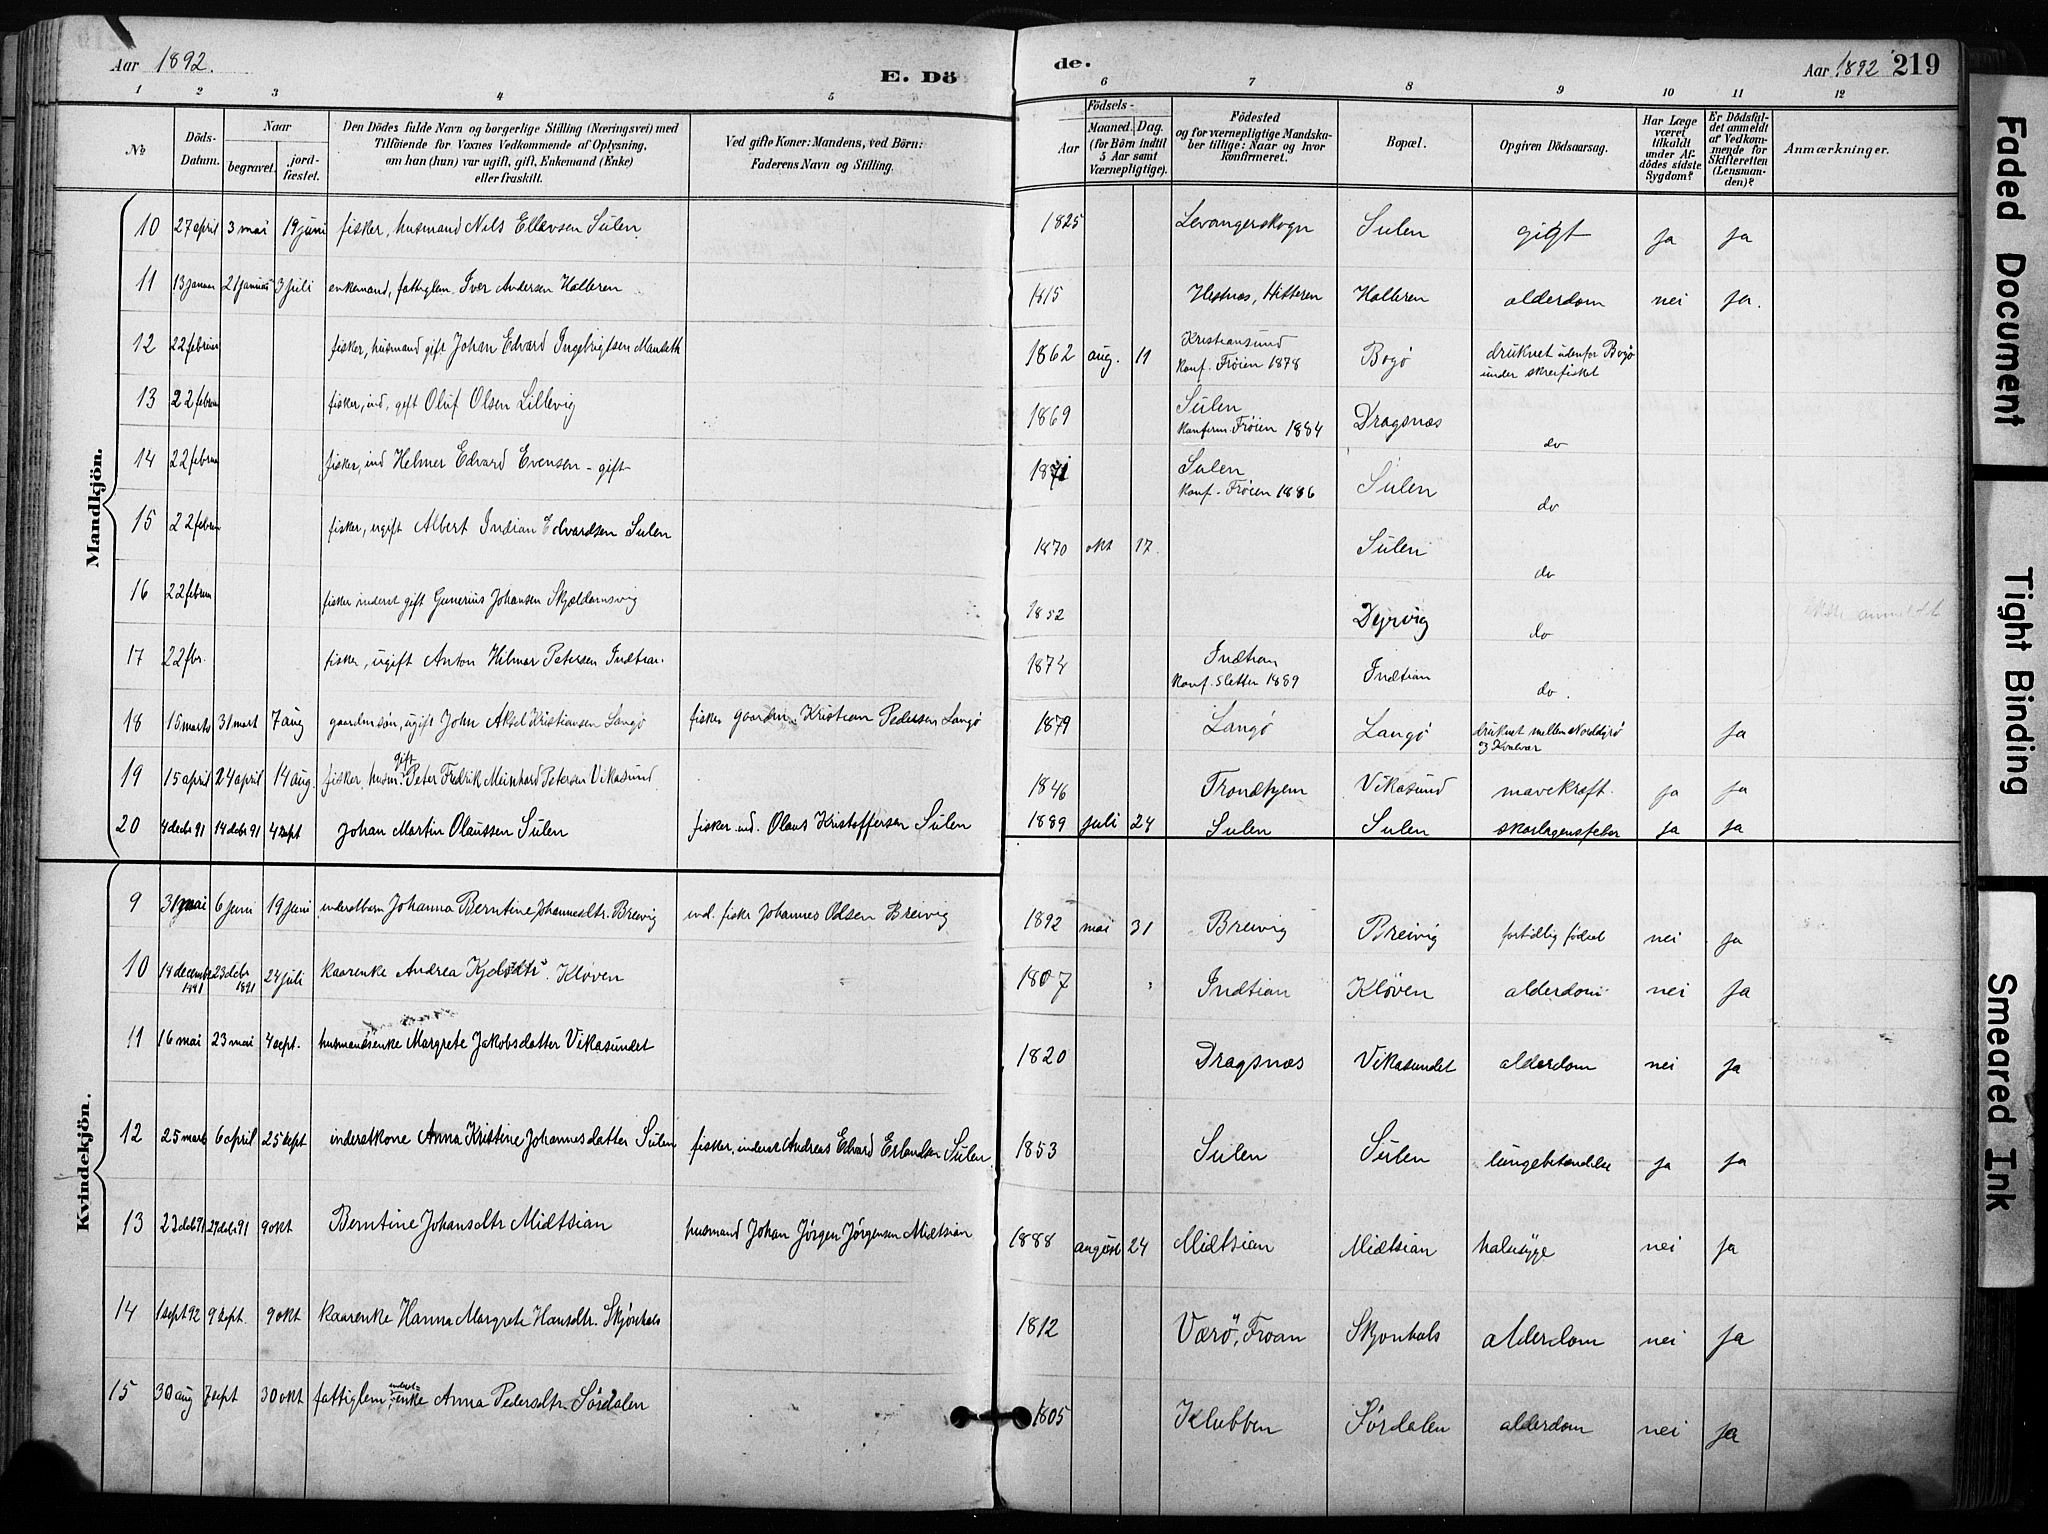 Aar 1892. E. Dö
de. Aar 1892 219
1 2 3 4 5 6 7 8 9 10 11 12
№
Döds-Datum.
Naar
begravet.
jord-fæstet.
Den Dödes fulde Navn og borgerlige Stilling (Næringsvei) med
Tilföiende for Voxnes Vedkommende af Oplysning,
om han (hun) var ugift, gift, Enkemand (Enke)
eller fraskilt.
Ved gifte Koner: Mandens, ved Börn:
Faderens Navn og Stilling.
Födsels-
Aar
Maaned. Dag.
(for Börn indtil
5 Aar samt
Værnepligtige).
Födested
og for værnepligtige Mandska-
ber tillige: Naar og hvor
konfirmeret.
Bopæl.
Opgiven Dödsaarsag.
Har Læge
været
tilkaldt
under Af-
dödes sidste
Sygdom?
Er Dödsfal-
det anmeldt
af Vedkom-
mende for
Skifteretten
(Lensman-
den)?
Anmærkninger.
Mandkjön.
10 27 april 3 mai 19 juni fisker, husmand Nils Ellevsen Sulen 1825 Levangerskogn Sulen gigt ja ja
11 13 januar 21 januar 3 juli enkemand, fattiglem Iver Andersen Halleren 1815 Hestnæs, Hitteren Halleren alderdom nei ja.
12 22 februar fisker, husmand gift Johan Edvard Ingebrigtsen 1862 aug. 11 Kristiansund
konf. Frøien 1878 Bogø druknet udenfor Bogø
under skreifisket
13 22 februar fisker, ind, gift Oluf Olsen Lillevig 1869 Sulen
konfirm. Frøien 1884 Dragsnæs do
14 22 februar fisker, ind Helmer Edvard Evensen - gift 1871 Sulen
konf. Frøien 1886 Sulen do
15 22 februar fisker, ugift Albert Indian Edvardsen Sulen 1870 okt 17. Sulen do
16 22 februar fisker inderst gift Gunerius Johansen Skjældamsvig 1852 Dyrvig do
17 22 fbr. fisker, ugift Anton Hilmar Petersen Indtian. 1874 Indtian
konf. Sletten 1889 Indtian do.
18 15 marts 31 mart 7 aug gaardmsøn, ugift John Aksel Kristiansen Langø fisker gaardm. Kristian Pedersen Langø 1879 Langø Langø druknet mellem Norddyrø
og Kvalvær ja
19 15 april 24 april 14 aug. fisker, husm. gift Peter Fredrik Meinhard Petersen Vikasund 1846 Trondhjem Vikasund mavekræft. ja ja
20 4 decbr 91 14 decbr 91 4 sept Johan Martin Olaussen Sulen fisker ind. Olaus Kristoffersen Sulen 1889 juli 24 Sulen Sulen skarlagensfeber ja ja
Kvindekjön.
9 31 mai 6 juni 19 juni inderstbarn Johanna Berntine Johannesdtr. Breivig ind. fiskr Johannes Olsen Breivig 1892 mai 31 Breivig Breivig fortidlig fødsel nei ja
10 14 decembr 1891 23 decbr 1891 24 juli kaarenke Andrea Kjelsdtr. Kløven 1807 Indtian Kløven alderdom nei ja
11 16 mai 23 mai 4 sept. husmandsenke Margrete Jakobsdatter Vikasundet 1820 Dragsnæs Vikasundet alderdom nei ja
12 25 mars 6 april 25 sept inderstkone Anna Kristine Johannesdatter Sulen fisker, inderst Andreas Edvard Erlandsen Sulen. 1853 Sulen Sulen lungebetændelse ja ja
13 23 decb 91 27 decbr 91 9 okt Berntine Johansdtr Midtsian husmand Johan Jørgen Jørgensen Midtsian 1888 august 24 Midtsian Midtsian halssyge nei ja
14 1 sept 92 9 sept. 9 okt kaarenke Hanna Margrete Hansdtr. Skjønhals 1812 Værø, Froan Skjønhals alderdom nei ja
15 30 aug 7 sept 30 okt fattiglem, inderst-enke Anna Pedersdtr Sørdalen 1805 Klubben Sørdalen alderdom nei ja
Faded Document
Tight Binding
Smeared Ink